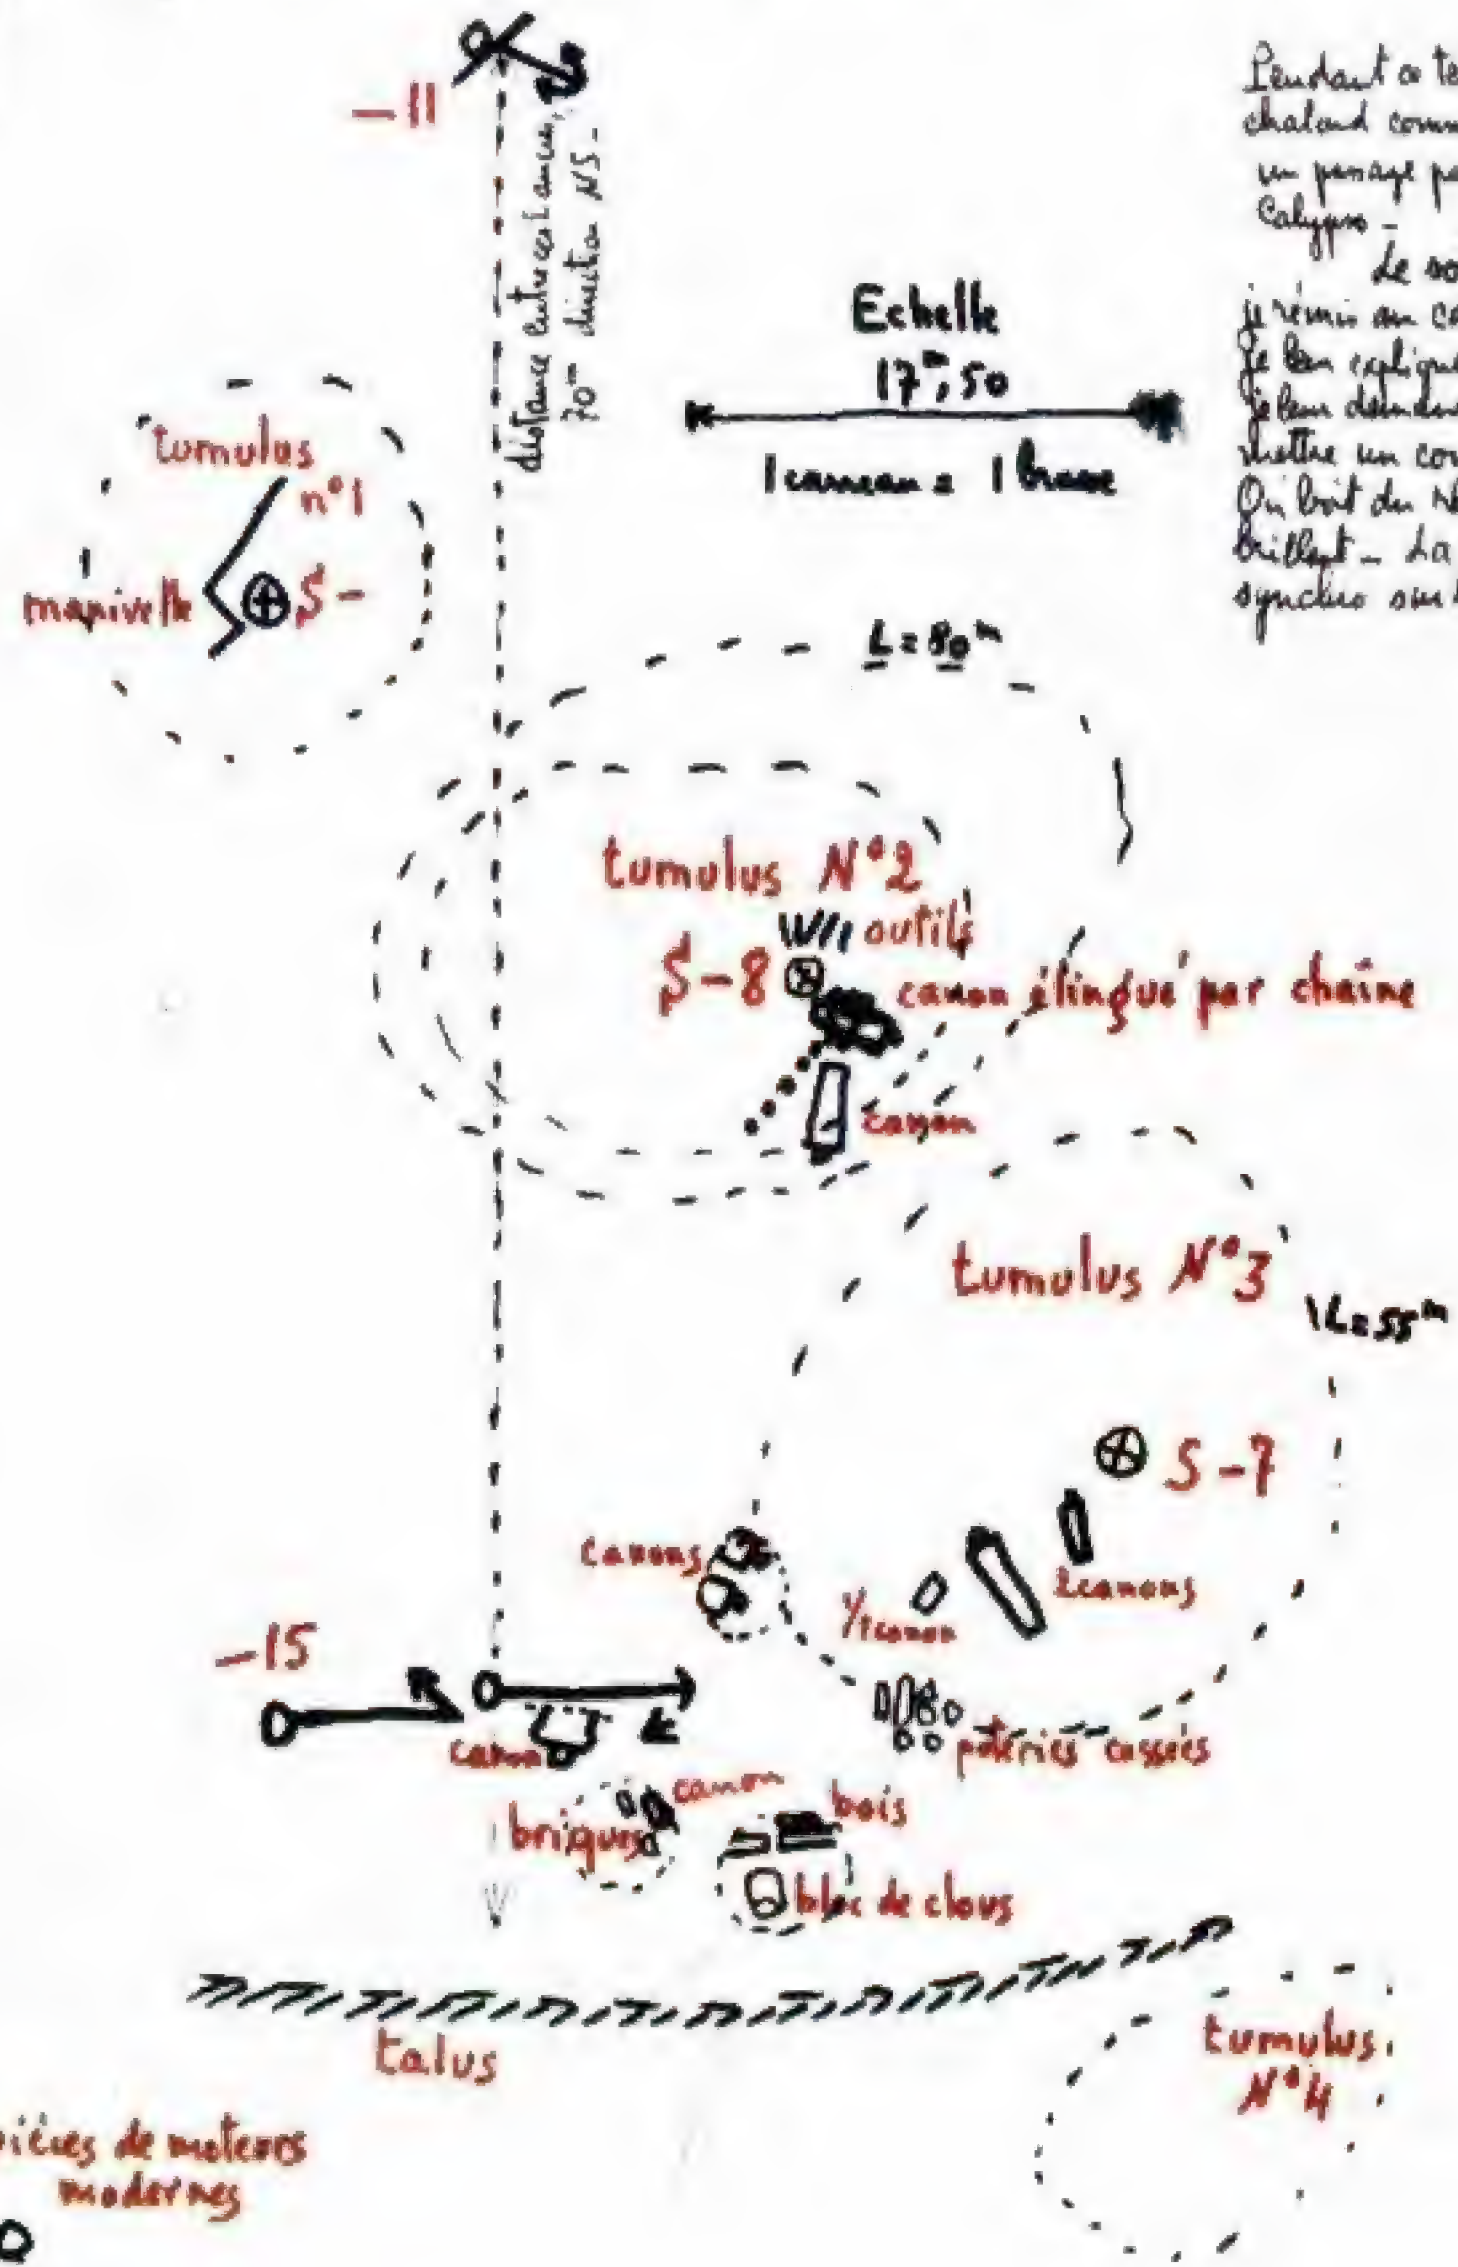 -11
distance entre ces 2 ancres,
70m direction NS-
Pendant ce te
chaland comm
un passage pa
Calypso -
Le so
je réunis au ca
je leur explique
je leur deman
mettre un co
On boit du
brillant - La
synchro sur
Echelle
17m,50
1 carreau = 1 brasse
tumulus
n°1
manivelle
S-
L=80m
tumulus N°2
outils
S-8
canon élingué par chaîne
canon
tumulus N°3
L=55m
S-7
canons
1/2 canon
2 canons
-15
canon
poteries cassées
canon
briques
bois
bloc de clous
talus
tumulus
N°4
pièces de moteurs
modernes